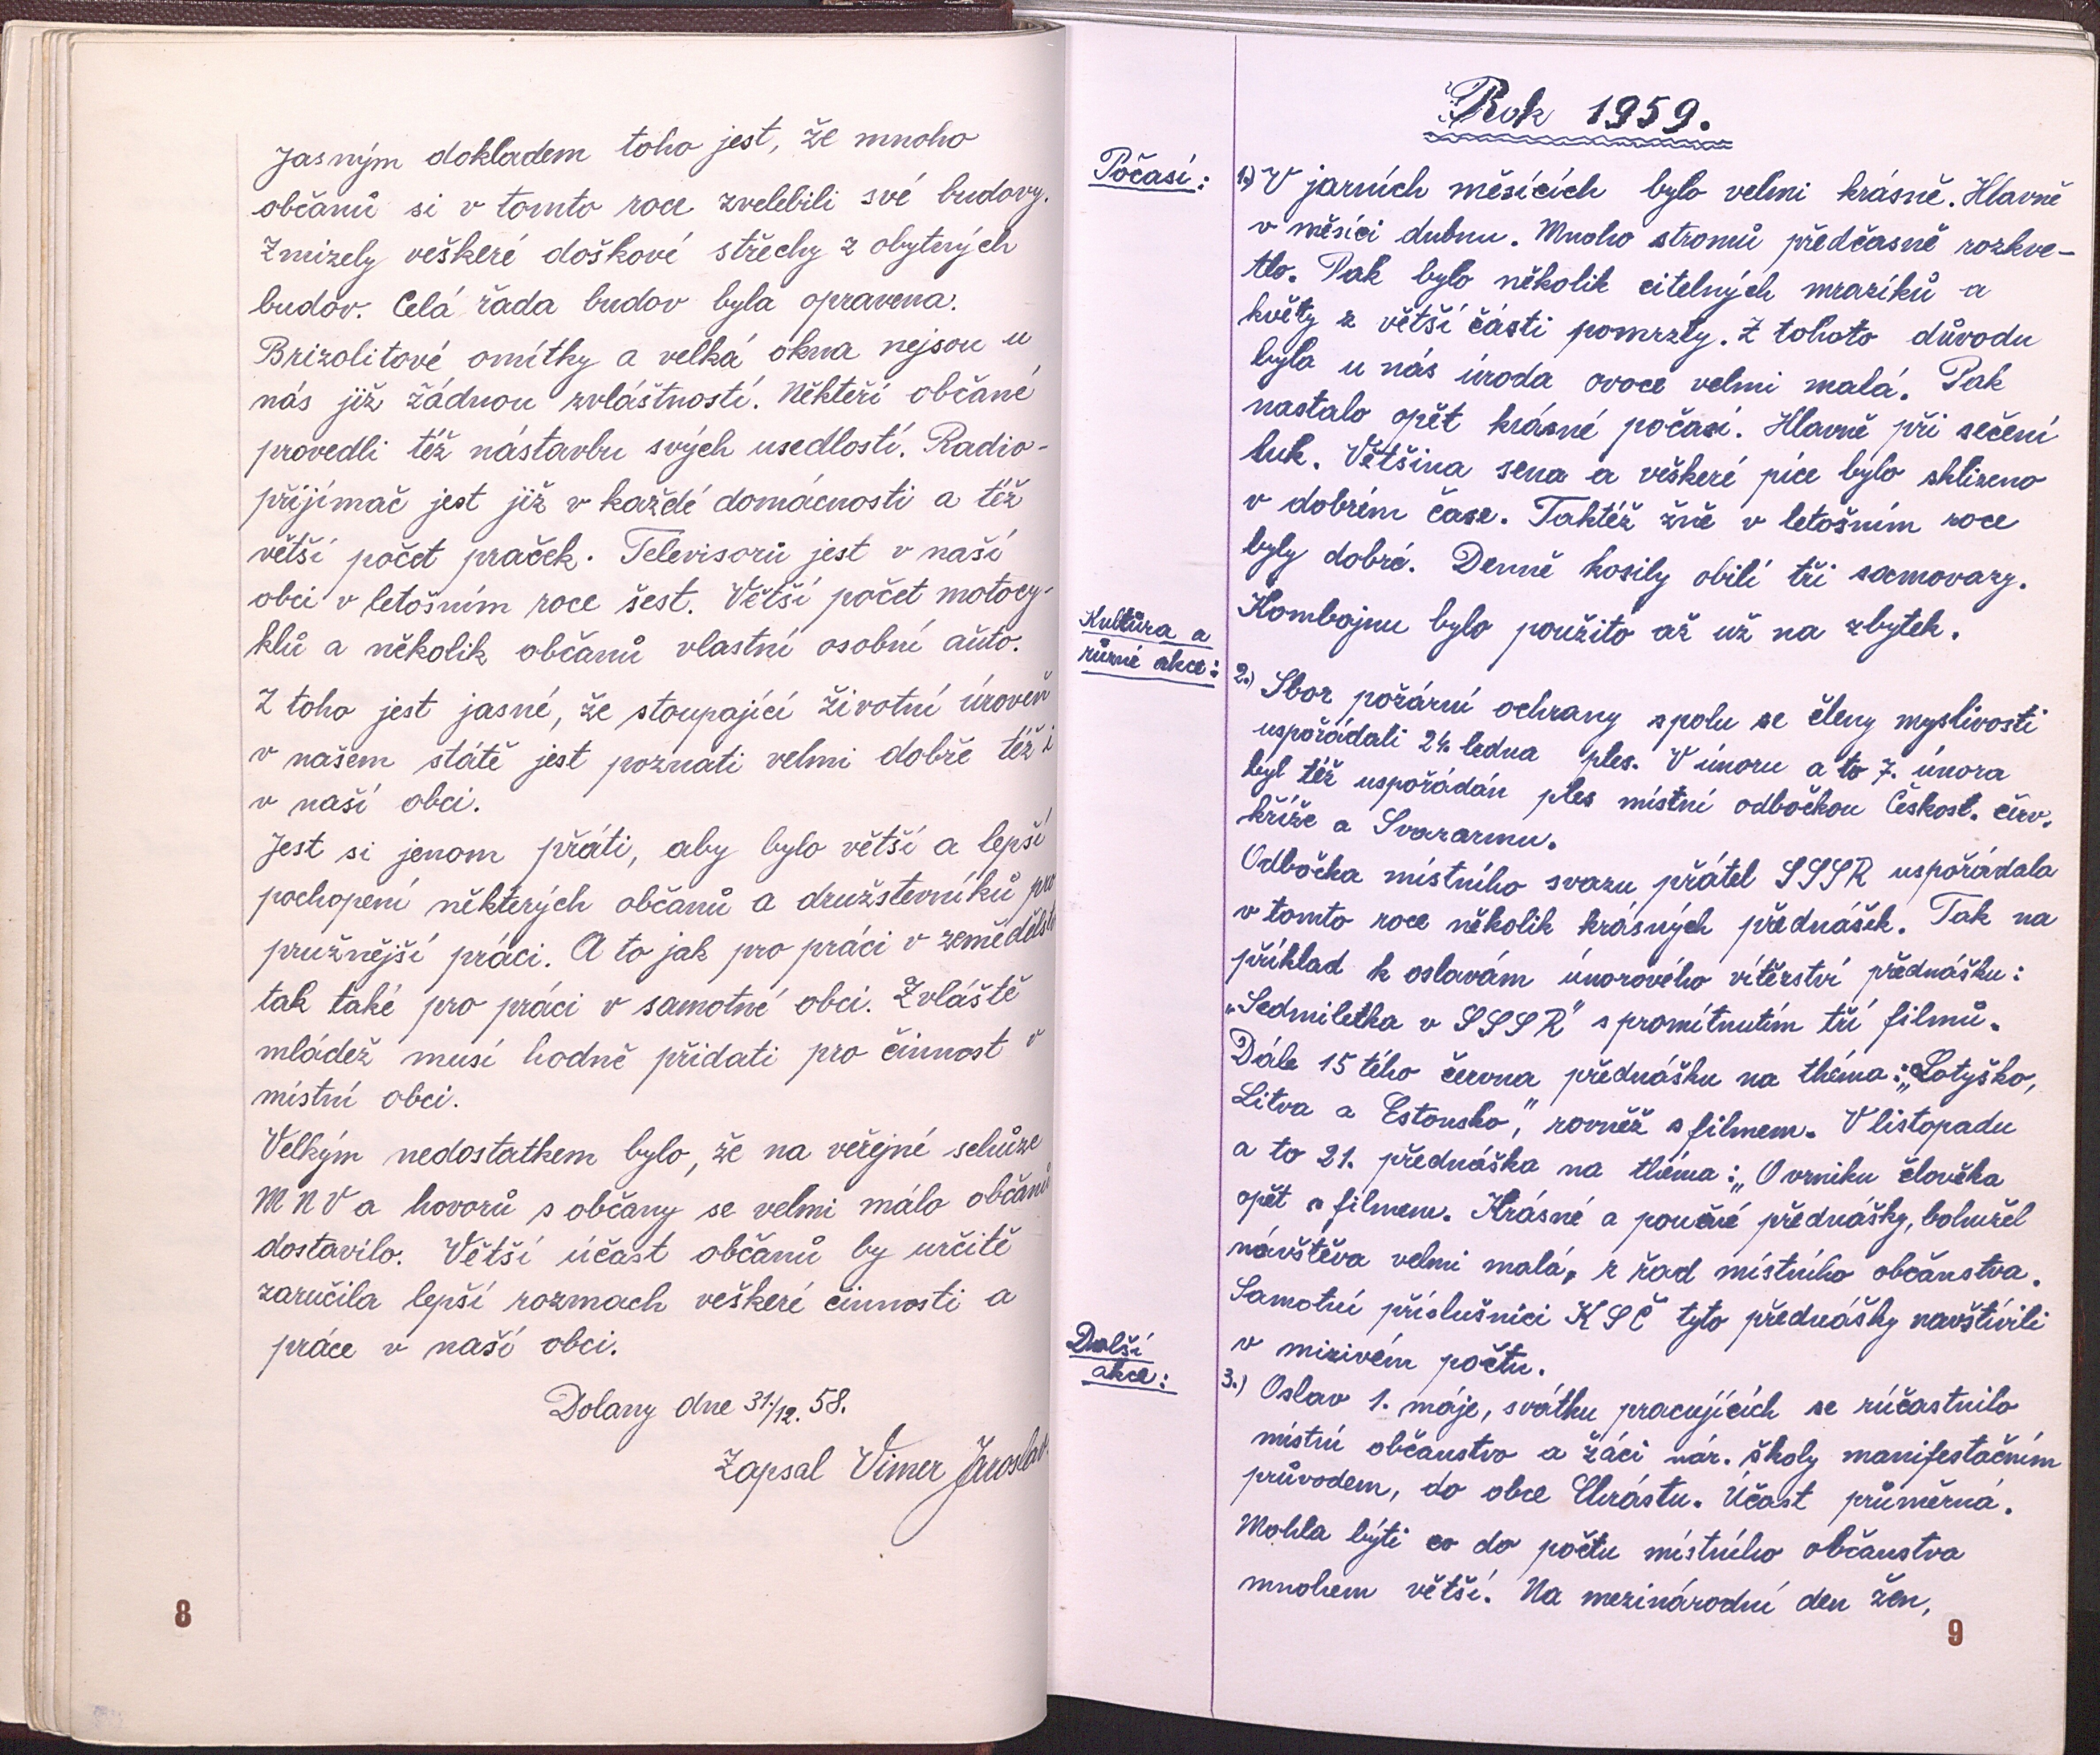 Jasným dokladem toho jest, že mnoho
občanů si v tomto roce zvelebili své budovy.
Zmizely veškeré doškové střechy z obytných
budov. Celá řada budov byla opravena.
Brizolitové omítky a velká okna nejsou u
nás již žádnou zvláštností. Někteří občané
provedli též nástavbu svých usedlostí. Radio-
přijímač jest již v každé domácnosti a též
větší počet praček. Televisorů jest v naší
obci v letošním roce šest. Větší počet motocy-
klů a několik občanů vlastní osobní auto.
Z toho jest jasné, že stoupající životní úroveň
v našem státě jest poznati velmi dobře též i
v naší obci.
Jest si jenom přáti, aby bylo větší a lepší
pochopení některých občanů a družstevníků pro
pružnější práci. A to jak pro práci v zemědělst
tak také pro práci v samotné obci. Zvláště
mládež musí hodně přidati pro činnost v
místní obci.
Velkým nedostatkem bylo, že na veřejné schůze
MNV a hovorů s občany se velmi málo občanů
dostavilo. Větší účast občanů by určitě
zaručila lepší rozmach veškeré činnosti a
práce v naší obci.
Dolany dne 31./12. 58.
Zapsal Vimer Jaroslav
8
Rok 1959.
Počasí:
1.) V jarních měsících bylo velmi krásně. Hlavně
v měsíci dubnu. Mnoho stromů předčasně rozkve-
tlo. Pak bylo několik citelných mrazíků a
květy z větší části pomrzly. Z tohoto důvodu
byla u nás úroda ovoce velmi malá. Pak
nastalo opět krásné počasí. Hlavně při sečení
luk. Většina sena a veškeré píce bylo sklizeno
v dobrém čase. Taktéž žně v letošním roce
byly dobré. Denně kosily obilí tři samovazy.
Kombajnu bylo použito až už na zbytek.
Kultůra a
různé akce:
2.) Sbor požární ochrany spolu se členy myslivosti
uspořádali 24. ledna ples. V únoru a to 7. února
byl též uspořádán ples místní odbočkou Českosl. červ.
kříže a Svazarmu.
Odbočka místního svazu přátel SSSR uspořádala
v tomto roce několik krásných přednášek. Tak na
příklad k oslavám únorového vítěrství přednášku:
"Sedmiletka v SSSR" s promítnutím tří filmů.
Dále 15 tého června přednášku na théma: "Lotyško,
Litva a Estonsko", rovněž s filmem. V listopadu
a to 21. přednáška na théma: "O vzniku člověka
opět s filmem. Krásné a poučné přednášky, bohužel
návštěva velmi malá, z řad místního občanstva.
Samotní příslušníci KSČ tyto přednášky navštívili
v mizivém počtu.
Další
akce:
3.) Oslav 1. máje, svátku pracujících se zúčastnilo
místní občanstvo a žáci nár. školy manifestačním
průvodem, do obce Chrástu. Účast průměrná.
Mohla býti co do počtu místního občanstva
mnohem větší. Na mezinárodní den žen,
9